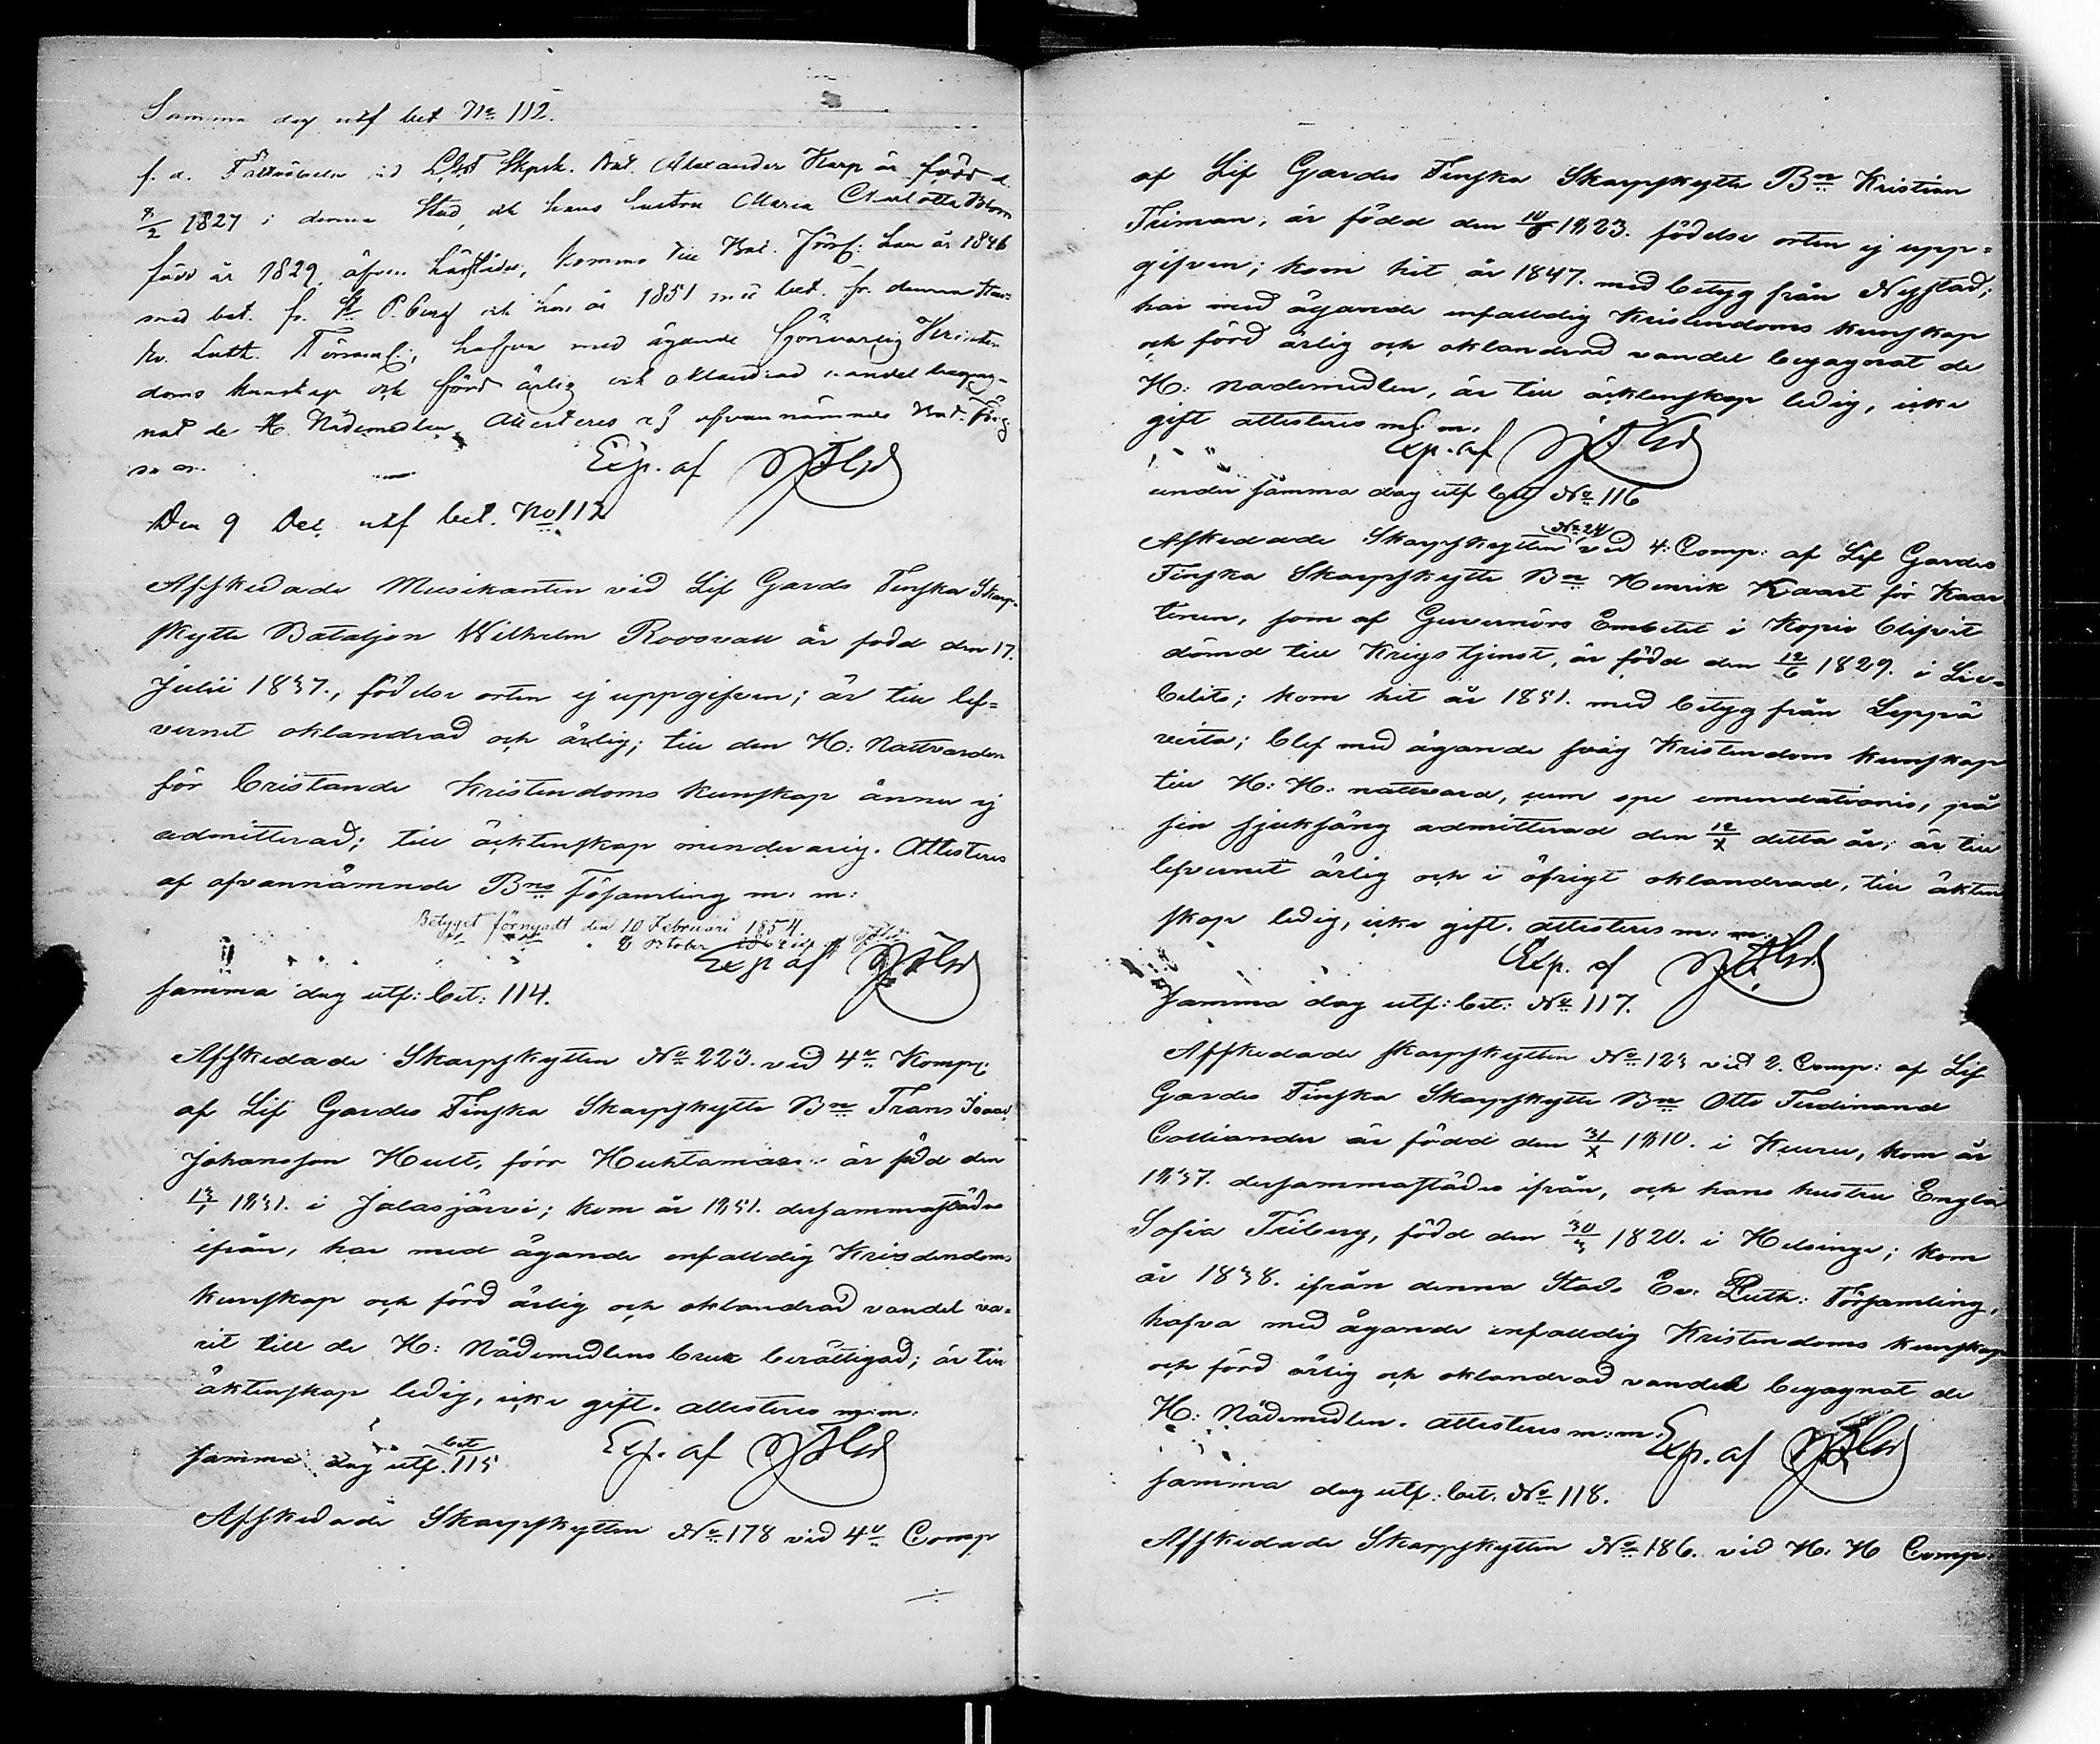 Samma dag utf bet No 112.
f. d. Fältväbeln vid LGF Skpsk. Bat. Alexander Karp är född d.
1827 i denna Stad, och hans hustru Maria Charlotta Blom
född år 1829 äfven härstädes, kommo till Bat. Förs: han år 1846
med bet. fr. St P.burg och hon år 1851 med bet. fr. denna Stads
Ev. Luth. Församl:, hafva med ägande försvarlig Kristen
doms kunskap och förd ärlig och oklandrad vandel begag-
nat de H. Nådemedlen Attesteras af ofvannämnde Bat. Förs:g
m m.
Exp. af
Den 9 Dec. utf bet. No 112
Afskedade Musikanten vid Lif Gardes Finska Skarp-
skytte Bataljon Wilhelm Roosvall är född den 17.
Julii 1837., födelse orten ej uppgifven; är till lef=
vernet oklandrad och ärlig; till den H: Nattvarden
för bristande Kristendoms kunskap ännu ej
admitterad; till äktenskap minderårig. Attesteras
af ofvannämnde Bns Församling m: m:
Betyget förnyadt den 10 Februari 1854.
" 8 October
Exp af
samma dag utf: bet: 114.
Afskedade Skarpskytten No 223. vid 4e Komp:
af Lif Gardes Finska Skarpskytte Bn Frans Isaac
Johansson Hult, förr Huhtamäe är född den
1831. i Jalasjärvi; kom år 1851. dersammastädes
ifrån, har med ägande enfalldig Krisdendoms
kunskap och förd ärlig och oklandrad vandel va=
rit till de H: Nådemedlens bruk berättigad; är till
äktenskap ledig, icke gift. attesteras m: m:
samma dag utf. bet 115
Exp. af
Afskedade Skarpskytten No 178 vid 4e Comp
af Lif Gardes Finska Skarpskytte Bn Kristian
Triman, är född den 1823. födelse orten ej upp=
gifven; kom hit år 1847. med betyg från Nystad;
har med ägande enfalldig Kristendoms kunskap
och förd ärlig och oklandrad vandel begagnat de
H: Nademedlen, är till äcktenskap ledig, icke
gift attesteras m: m.
Exp. af
under samma dag utf bet No 116
Afskedade Skarpskytten No 24 vid 4: Comp: af Lif Gardes
Finska Skarpskytte Bn Henrik Kaart för Kaar
tinen, som af Guvernörs Embetet i Kopio blifvit
dömd till Krigstjenst, är född den 12/6 1829. i Lie=
belits; kom hit år 1851. med betyg från Leppä
virta; blef med ägande svag Kristendoms kunskap
till H: H: nattvard, cum spe emendationis, på
sin sjuksäng admitterad den 12/X detta år; är till
lefvernet ärlig och i öfrigt oklandrad, till äkten
skap ledig, icke gift. attesteras m: m:
Exp. af
Samma dag utf: bet: No 117.
Afskedade skarpskytten No 123 vid 2. Comp: af Lif
Gardes Finska Skarpskytte Bn Otto Ferdinand
Colliander är född den 31/X 1810. i Keuru, kom år
1837. dersammastädes ifrån, och hans hustru Engla
Sofia Friberg, född den 30/3 1820. i Helsinge; kom
år 1838. ifrån denna Stads Ev: Luth: Församling,
hafva med ägande enfalldig Kristendoms kunskap
och förd ärlig och oklandrad vandel begagnat de
H: Nådemedlen. attesteras m: m:
Exp. af
samma dag utf: bet. No 118.
Afskedade Skarpskytten No 186. vid H: H Comp: